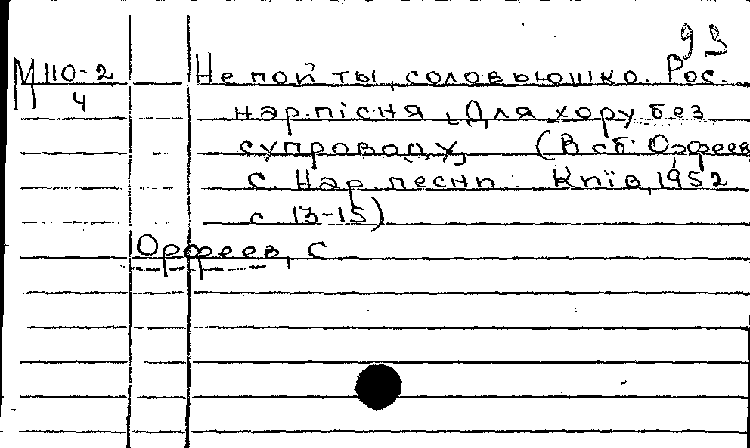 93
М 110-2 Не пой ты, соловьюшко. Рос.
4 нар. пісня. Для хору без
супроводу. (В сб: Орфеев
С. Нар. песни. Київ, 1952
с. 13-15)
Орфеев, С